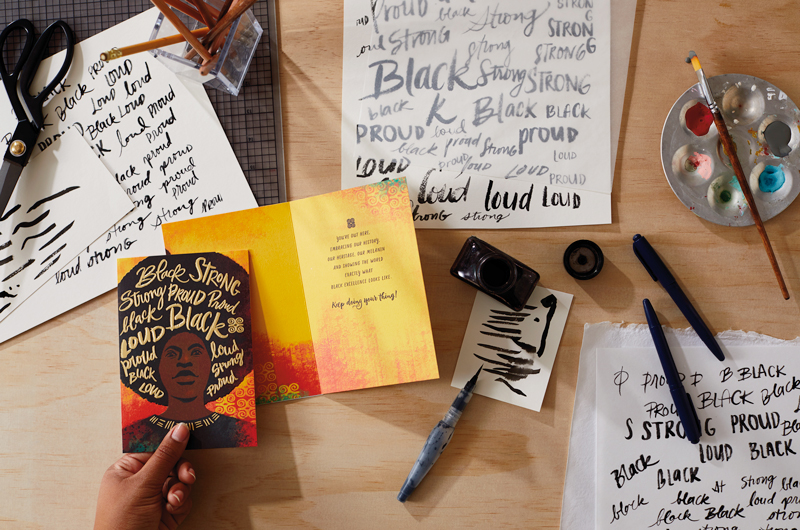 PROUD
LOUD
Black
LOUD
Black
LOUD
loud
Black LOUD
proud
loud
proud
Proud
proud
proud
proud
proud
strong
proud
strong
strong
Proud
loud
strong
Proud
black
Strong
STRONG
loud
Strong
strong
STRONG
Black
Strong
STRONG
black
K
Black
BLACK
PROUD
loud
proud
black
proud
Strong
LOUD
proud
loud
LOUD
LOUD
PROUD
Loud
loud
LOUD
strong
strong
Black STRONG
Strong PROUD Proud
black
LOUD Black
proud
loud
BLACK
Strong
LOUD
Proud
YOU'RE OUT HERE,
EMBRACING OUR HISTORY,
OUR HERITAGE, OUR MELANIN
AND SHOWING THE WORLD
EXACTLY WHAT
BLACK EXCELLENCE LOOKS LIKE.
Keep doing your thing!
P proud P B BLACK
PROUD BLACK Black
S STRONG PROUD
LOUD BLACK
Black
BLACK
Strong
black
black
black
St
loud
proud
black Black
strong